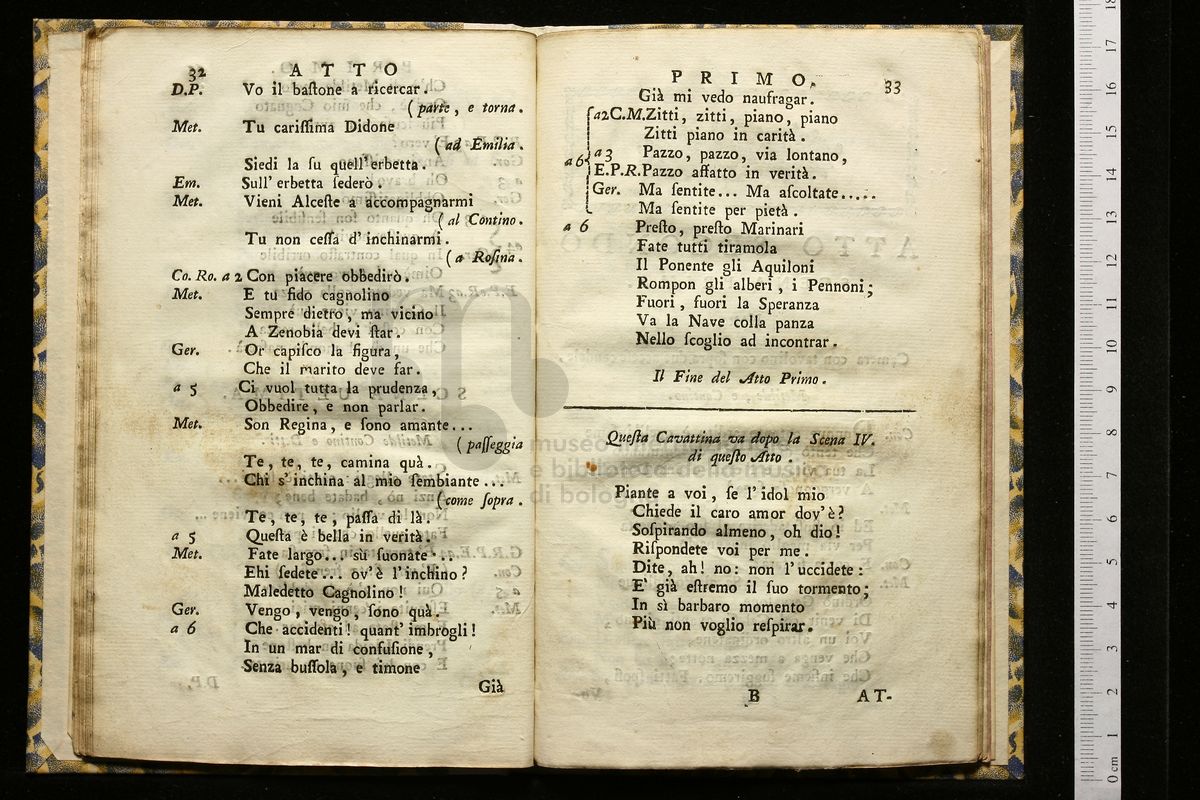 32
ATTO
D.P. Vo il baſtone a ricercar.
(parte, e torna.
Met. Tu cariſſima Didone
(ad Emilia.
Siedi la ſu quell'erbetta.
Em. Sull'erbetta ſederò.
Met. Vieni Alceſte a accompagnarmi
(al Contino.
Tu non ceſſa d'inchinarmi.
(a Roſina.
Co. Ro. a 2 Con piacere obbedirò.
Met. E tu fido cagnolino
Sempre dietro, ma vicino
A Zenobia devi ſtar.
Ger. Or capiſco la figura,
Che il marito deve far.
a 5 Ci vuol tutta la prudenza,
Obbedire, e non parlar.
Met. Son Regina, e ſono amante...
(paſſeggia
Te, te, te, camina quà.
Chi s'inchina al mio ſembiante...
(come ſopra.
Te, te, te, paſſa di là.
a 5 Queſta è bella in verità.
Met. Fate largo... sù ſuonate...
Ehi ſedete... ov'è l'inchino?
Maledetto Cagnolino!
Ger. Vengo, vengo, ſono quà.
a 6 Che accidenti! quant'imbrogli!
In un mar di confuſione,
Senza buſſola, e timone
Già
PRIMO.
33
Già mi vedo naufragar.
a2 C.M. Zitti, zitti, piano, piano
Zitti piano in carità.
a 6 a 3 Pazzo, pazzo, via lontano,
E.P.R. Pazzo affatto in verità.
Ger. Ma ſentite... Ma aſcoltate.....
Ma ſentite per pietà.
a 6 Preſto, preſto Marinari
Fate tutti tiramola
Il Ponente gli Aquiloni
Rompon gli alberi, i Pennoni;
Fuori, fuori la Speranza
Va la Nave colla panza
Nello ſcoglio ad incontrar.
Il Fine del Atto Primo.
Queſta Cavattina va dopo la Scena IV.
di queſto Atto.
Piante a voi, ſe l'idol mio
Chiede il caro amor dov'è?
Soſpirando almeno, oh dio!
Riſpondete voi per me.
Dite, ah! no: non l'uccidete:
E' già eſtremo il ſuo tormento;
In sì barbaro momento
Più non voglio reſpirar.
B
AT-